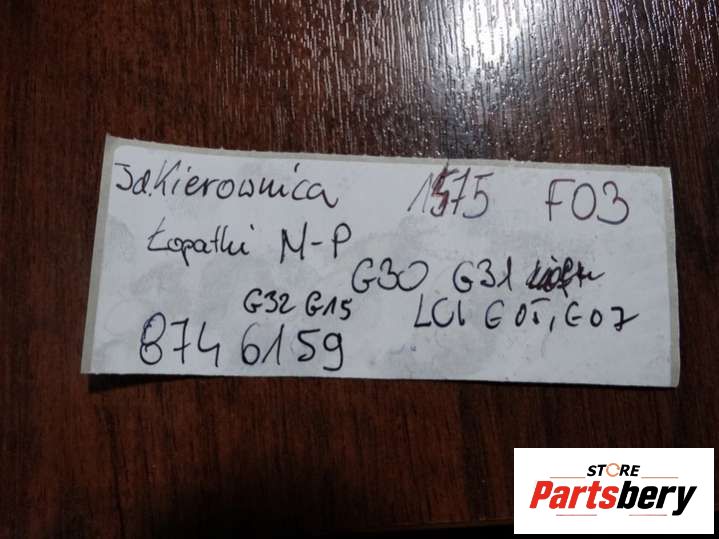 Jd.Kierownica 1575 F03
Łopatki M-P
G30 G31
G32 G15 LCI G05, G07
8746159
STORE
Partsbery